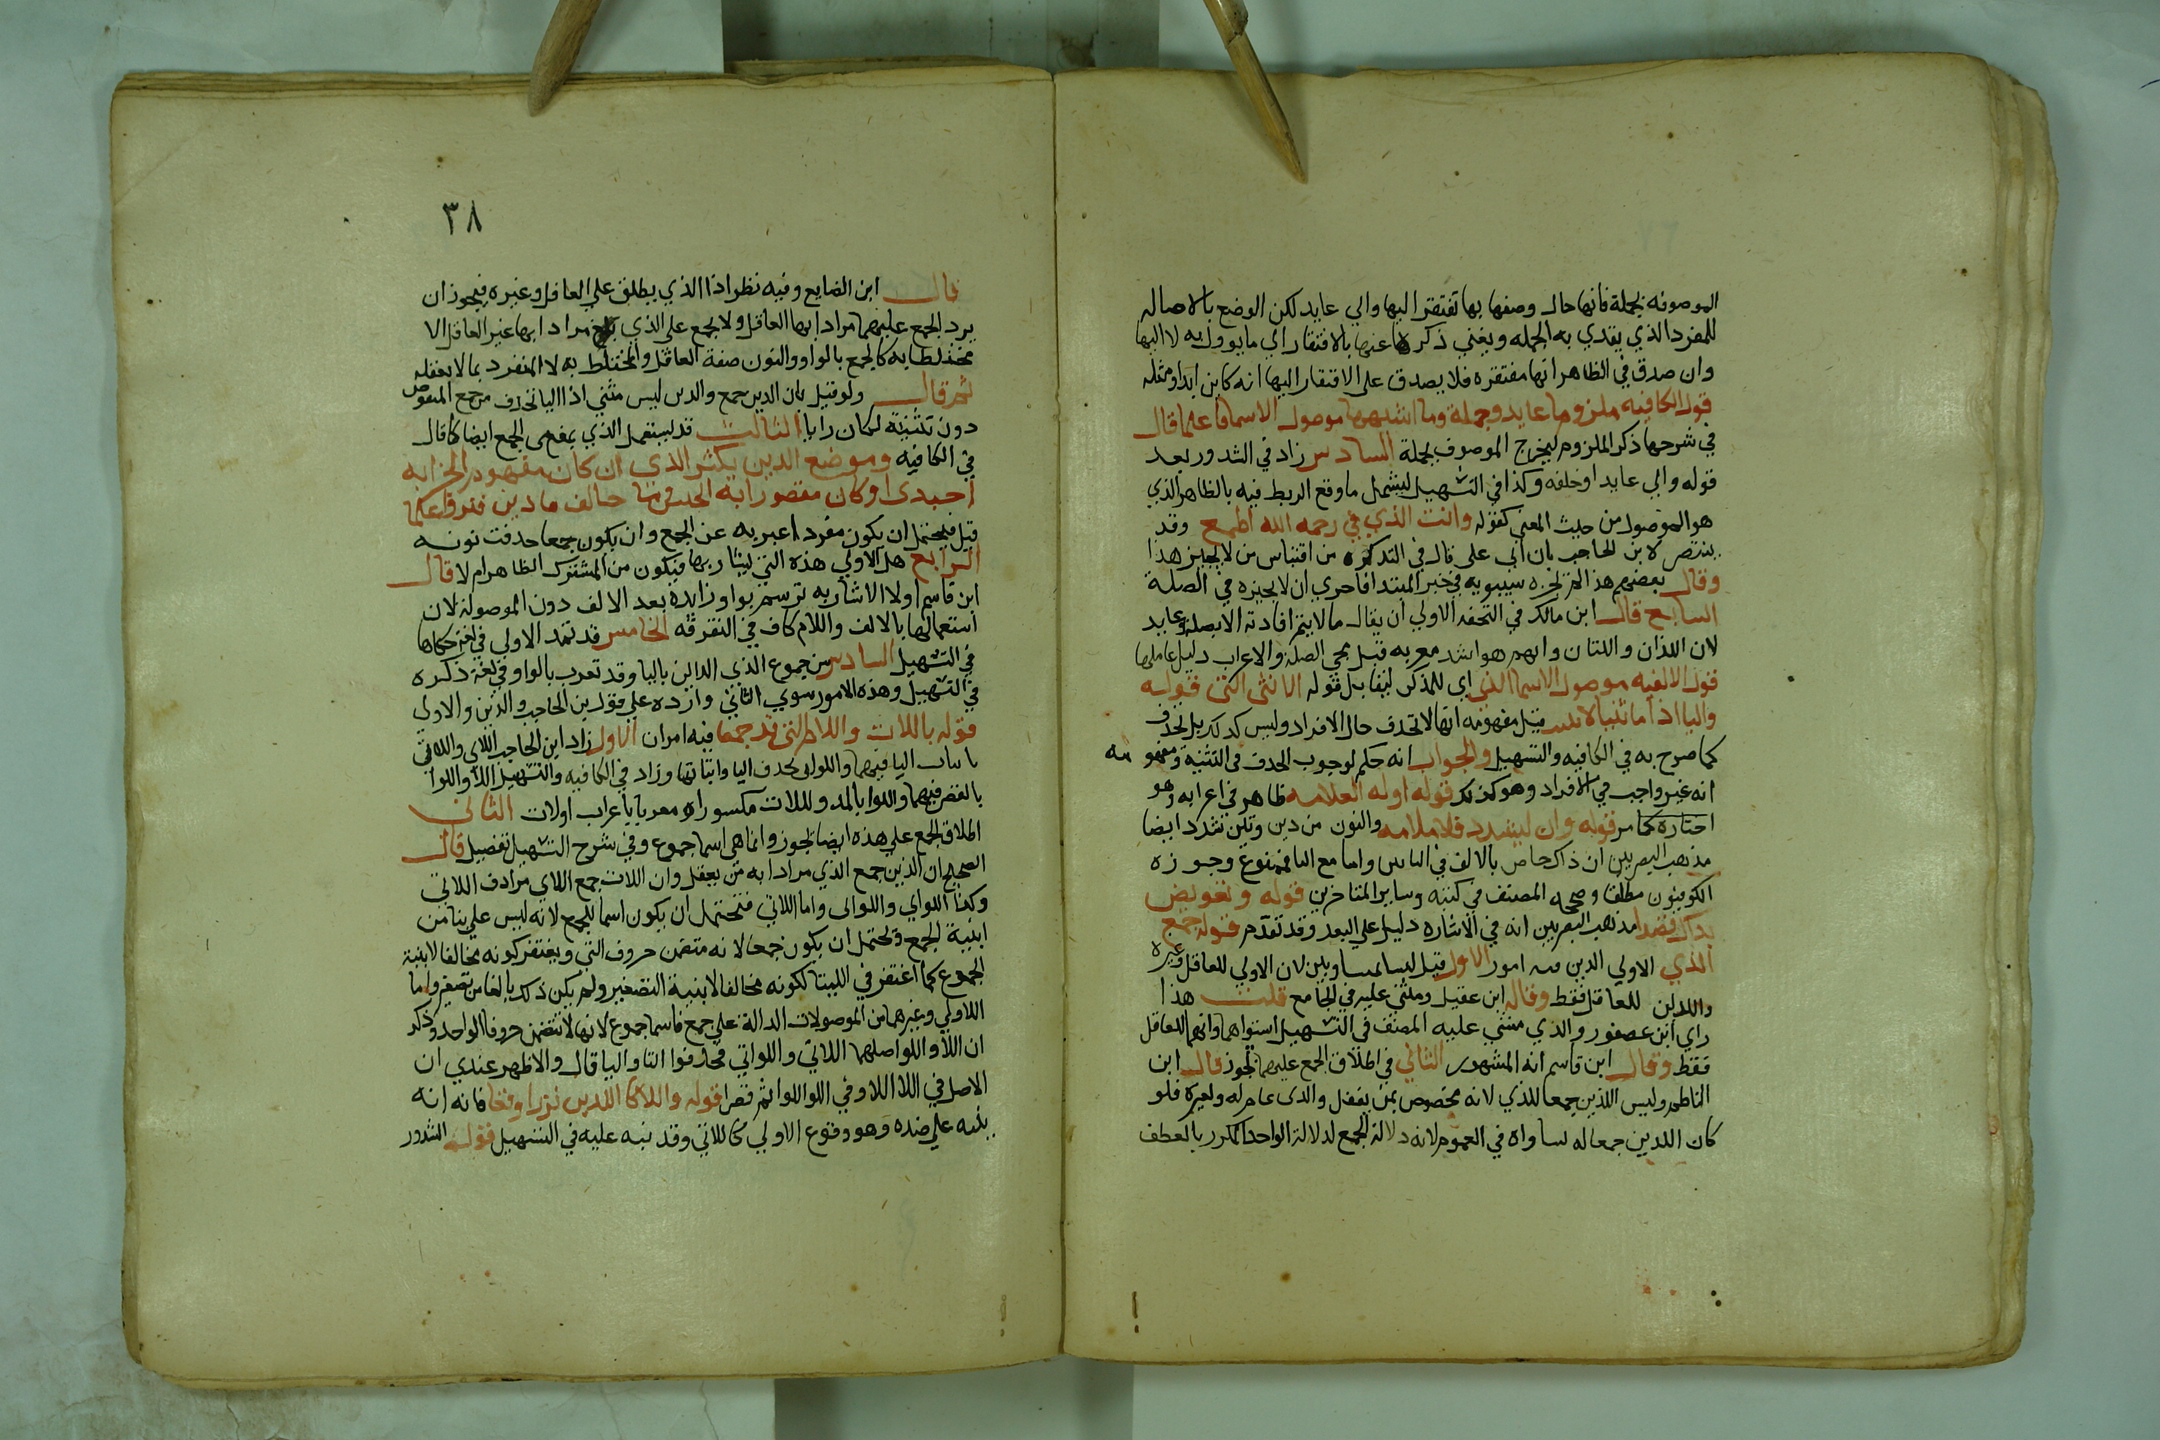 الموصوفه بجملة فانها حال وصفها بها تفتقر اليها والي عايد لكن الوضع بالاصاله
للمفرد الذي يقدي به الجمله ويغني ذكر ها عنها بالافتقار الي ما يوول به لا اليها
وان صدق في الظاهر انها مفتقره فلا يصدق علي الافتقار اليها انه كاين ابدا ومثله
قول الكافيه ملزوما عايد وجملة وما اشبهها موصول الاسما فاعلما قال
في شرحها ذكر الملزوم ليخرج الموصوف بجملة السادس زاد في الشدور بعد
قوله والي عايد او خلفه وكذا في التسهيل ليشمل ما وقع الربط فيه بالظاهر الذي
هو الموصول من حيث المعني كقوله وانت الذي في رحمه الله اطمع وقد
ينتصر لابن الحاجب بان ابي علي قال في التذكره من اقتباس من لا يجيز هذا
وقال بعضهم هذا لم يجزه سيبويه في خبر المبتدا فاحري ان لا يجيزه في الصلة
السابع قال ابن مالك في التحفه الاولي ان يقال ما لا يتم افادته الا بصلة وعايد
لان اللذان واللتان وايهم هو اشد معربه قبل مجي الصلة والاعراب دليل عاملها
قول الالفيه موصول الاسما الذي اي للمذكر ليقابل قوله الانثي التي قوله
واليا اذا ما ثنيا لا تثبت قيل مفهومه انها لا تحذف حال الافراد وليس كذلك بل تحذف
كما صرح به في الكافيه والتسهيل والجواب انه حكم لوجوب الحذف في التثنية ومفهومه
انه غير واجب في الافراد وهو كذلك قوله اوله العلامه ظاهر في اعرابه وهو
اختاره كما مر قوله وان تشدد فلا ملامه والنون من ذين وتين شددا ايضا
مذهب البصريين ان ذاك خاص بالالف في الناس واما مع اليا فممنوع وجوزه
الكوفيون مطلقا وصححه المصنف في كتبه وساير المتاخرين قوله وتعويض
بذاك قصدا مذهب البصريين انه في الاشاره دليل علي البعد وقد تقدم قوله جمع
الذي الاولي الذين فيه امور الاول قيل ليسا متساويين لان الاولي للعاقل وغيره
والذين للعاقل فقط وقاله ابن عقيل ومشي عليه في الجامع قلت هذا
راي ابن عصفور والذي مشي عليه المصنف في التسهيل استواهما وانهما للعاقل
فقط وقال ابن قاسم انه المشهور الثاني في اطلاق الجمع عليهما تجوز قال ابن
الناظم وليس اللذين جمعا للذي لانه مخصوص بمن يعقل والذي عام له ولغيره فلو
كان الذين جمعا له لساواه في العموم لانه دلالة الجمع لدلالة الواحد المكرر بالعطف
٣٨
قال ابن الضايع وفيه نظر اذا الذي يطلق علي العاقل وغيره فيجوز ان
يرد الجمع عليهما مرادا بها العاقل ولا يجمع علي الذي مرادا بها غير العاقل الا
مختلطا به كما يجمع بالواو والنون صفة العاقل والمختلط به لا المنفرد بما لا يعقل
ثم قال ولو قيل بان الذين جمع والذين ليس مثني اذ اليا تحذف من جمع المنقوص
دون تثنية لكان رايا الثالث قد يستعمل الذي بمعني الجمع ايضا كما قال
في الكافيه وموضع الذين يكثر الذي ان كان مفهوم الجزا به
احتذي او كان مقصورا به الجنس وما خالف ما ذين فنزرا علما
قيل فيحتمل ان يكون مفردا عبر به عن الجمع وان يكون جمعا حذفت نونه
الرابع هل الاولي هذه التي يشار بها فيكون من المشترك الظاهر ام لا قال
ابن قاسم اولا الاشاريه ترسم بواو زايده بعد الالف دون الموصولة لان
استعمالها بالالف واللام كاف في التفرقه الخامس قد تمد الاولي في لغة حكاها
في التسهيل السادس من جموع الذي اللاين باليا وقد تعرب بالواو في لغة ذكره
في التسهيل وهذه الامور سوي الثاني وارده علي قول ابن الحاجب والذين والاولي
قوله باللات واللا التي قد جمعا فيه امران الاول زاد ابن الحاجب اللاي واللاتي
باثبات اليا فيهما واللواتي بحذف اليا واثباتها وزاد في الكافيه والتسهيل اللا واللوا
بالقصر فيهما واللوا بالمد وللات مكسوراه معربا باعراب اولات الثاني
اطلاق الجمع علي هذه ايضا تجوز وانما هي اسما جموع وفي شرح التسهيل تفصيل قال
الصحيح ان الذين جمع الذي مرادا به من يعقل وان اللات جمع اللاي مرادف اللاتي
وكذا اللواي واللوالي واما اللاتي فيحتمل ان يكون اسما للجمع لانه ليس علي بنا من
ابنية الجمع ويحتمل ان يكون جمعا لانه متضمن حروف التي ويغتفر كونه مخالفا لابنية
الجموع كما اغتفر في اللتيا لكونه مخالفا لابنية التصغير ولم يكن ذلك بالغا من تصغير واما
اللاولي وغيرهما من الموصولات الدالة علي جمع فاسما جموع لانها لا تتضمن حروف الواحد وذكر
ان اللا واللوا صلهما اللاتي واللواتي فحذفوا التا واليا قال والاظهر عندي ان
الاصل في اللا اللاا وفي اللوا اللواا ثم قصرا قوله واللا كالذين نزرا وقعا فانه انه
ينبه علي ضده وهو وقوع الاولي كاللاتي وقد نبه عليه في التسهيل قوله الشدور